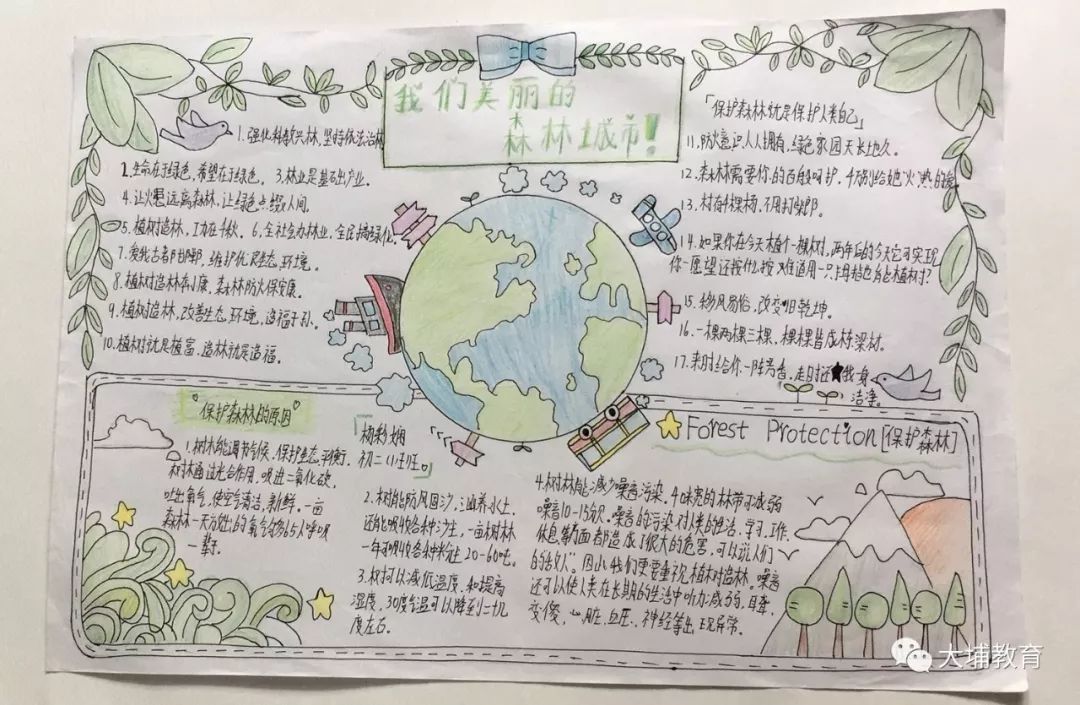 我们美丽的
森林城市!
1.强化科教兴林,坚持依法治林
2.生命在于绿色,希望在于绿色。 3.林业是基础产业。
4.让火远离森林,让绿色点缀人间。
5.植树造林,功在千秋。6.全社会办林业,全民搞绿化。
7.爱我古都邯郸,维护优良生态环境。
8.植树造林奔小康,森林防火保安康。
9.植树造林,改善生态环境,造福子孙。
10.植树就是植富,造林就是造福。
「保护森林就是保护人类自己」
11.防火意识人人拥有,绿色家园天长地久。
12.森林需要你的百般呵护,千万别给她"火"热的
13.村有千棵杨,不用打柴郎。
14.如果你在今天植下一棵树,两年后的今天它可实现
你一愿望还按什么按,难道用一只拇指也能植树?
15.移风易俗,改变旧乾坤。
16.一棵两棵三棵,棵棵皆成栋梁材。
17.来时给你一阵芳香,走时还我一身
洁净。
"保护森林的原因"
1.树木能调节气候,保护生态平衡。
树木通过光合作用,吸进二氧化碳,
吐出氧气,使空气清洁、新鲜。一亩
森林一天放出的氧气够65人呼吸
一辈子。
「杨彩娴
初二(1)班。」
2.树能防风固沙,涵养水土,
还能吸收各种沙尘,一亩树林
一年可吸收各种粉尘20-60吨。
3.树可以减低温度,和提高
湿度,30度气温可以降到二十几
度左右。
Forest Protection [保护森林]
4.树林能减少噪音污染。40米宽的林带可减弱
噪音10-15分贝。噪音的污染对人类的生活、学习、工作、
休息等方面都造成了很大的危害,可以说人们
的敌人"。因此我们更要重视植树造林。噪音
还可以使人类在长期的生活中听力减弱,耳聋,
变傻,心脏,血压,神经等出现异常。
大埔教育